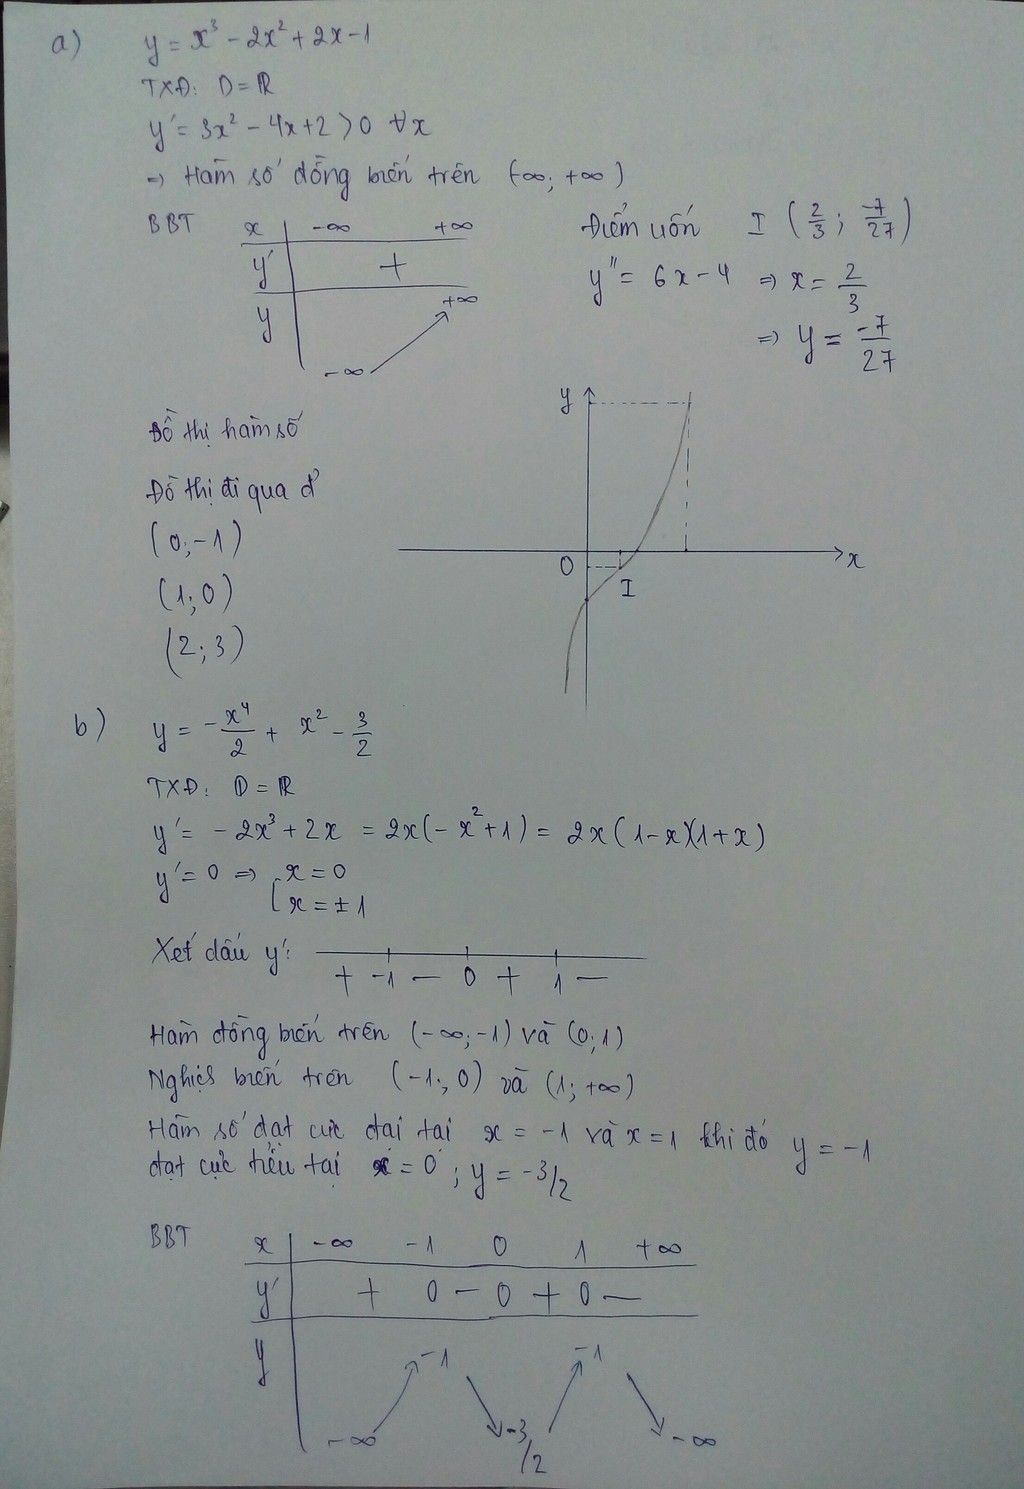 a) y = x³ - 2x² + 2x - 1
TXĐ: D = ℝ
y' = 3x² - 4x + 2 > 0 ∀x
=> Hàm số đồng biến trên (-∞; +∞)
BBT
x -∞ +∞
y' +
y -∞ +∞
Điểm uốn I (2/3; -7/27)
y'' = 6x - 4 => x = 2/3
=> y = -7/27
Đồ thị hàm số
Đồ thị đi qua đ'
(0; -1)
(1; 0)
(2; 3)
y
O I x
b) y = -x⁴/2 + x² - 3/2
TXĐ: D = ℝ
y' = -2x³ + 2x = 2x(-x² + 1) = 2x(1-x)(1+x)
y' = 0 => [ x = 0
x = ±1
Xét dấu y':
+ -1 — 0 + 1 —
Hàm đồng biến trên (-∞; -1) và (0; 1)
Nghịch biến trên (-1; 0) và (1; +∞)
Hàm số đạt cực đại tại x = -1 và x = 1 khi đó y = -1
đạt cực tiểu tại x = 0 ; y = -3/2
BBT
x -∞ -1 0 1 +∞
y' + 0 — 0 + 0 —
y -∞ -1 -3/2 -1 -∞